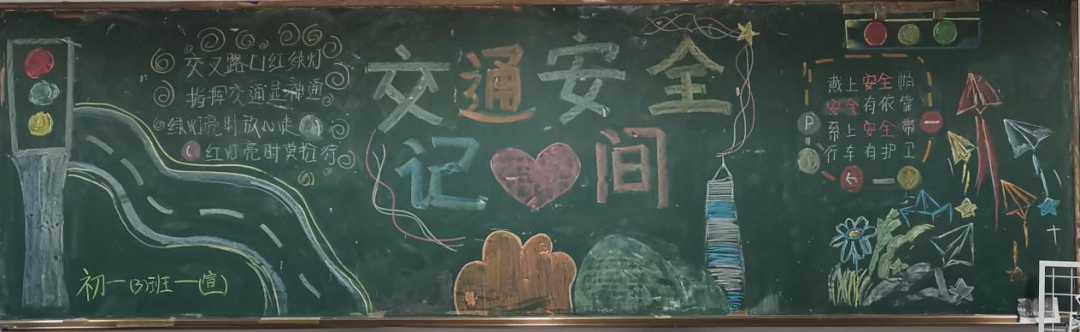 交叉路口红绿灯
指挥交通显神通
绿灯亮时放心走
红灯亮时莫抢行
初一(3)班一(宣)
交通安全
记间
戴上安全帽
安全有依靠
系上安全带
行车有护卫
P